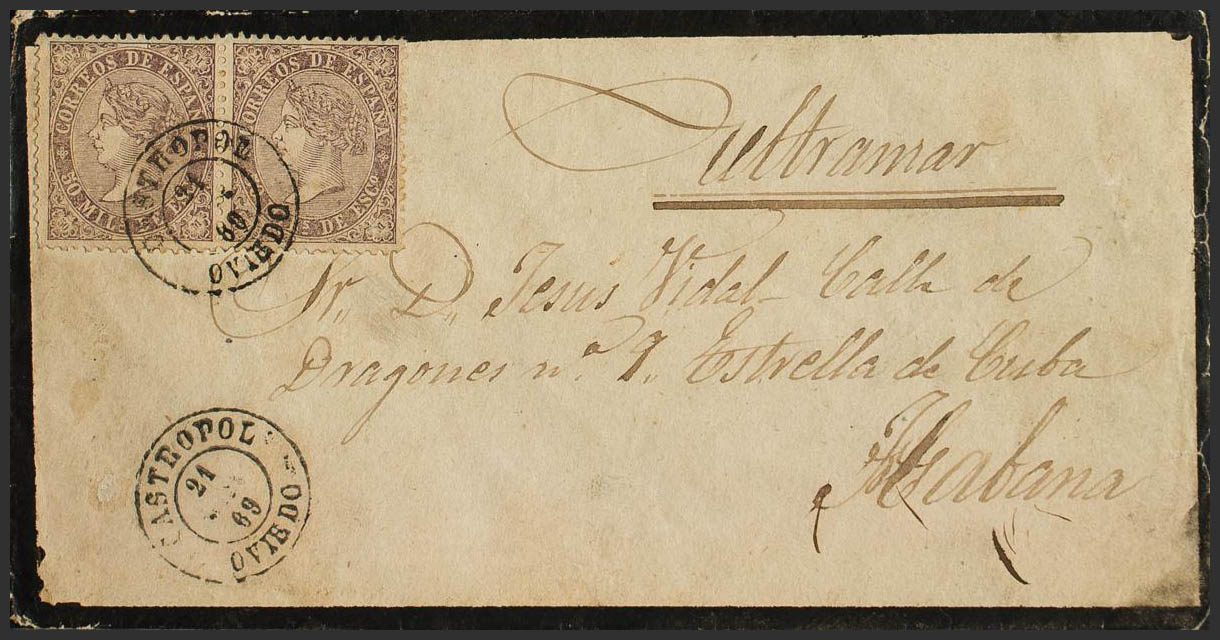 CORREOS DE ESPAÑA
50 MIL
CORREOS DE ESPAÑA
DE ESCO.
CASTROPOL
21
69
OVIEDO
Ultramar
Sr. D. Jesus Vidal Calle de
Dragones nº 9. Estrella de Cuba
Habana
CASTROPOL
21
69
OVIEDO